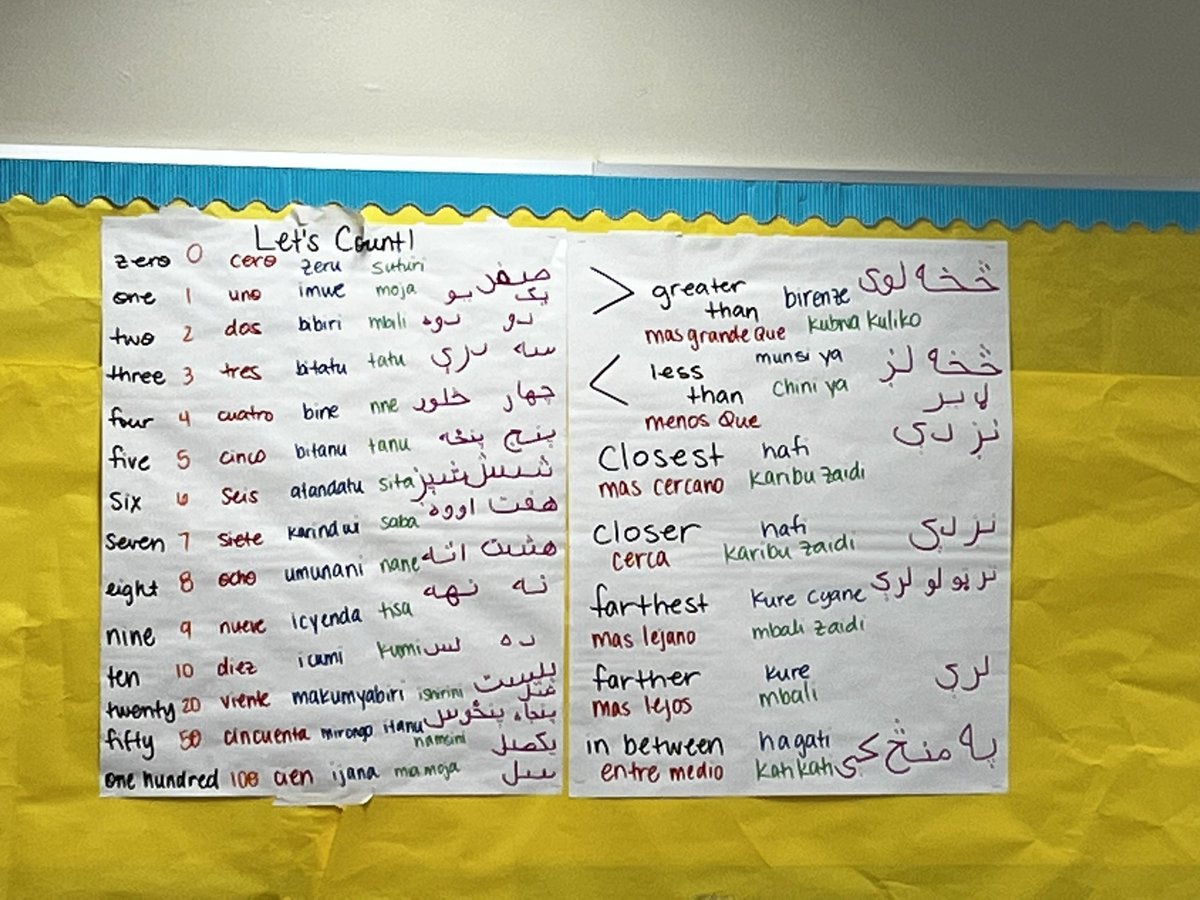 Let's Count!
zero 0 cero zeru suturi صفر
one 1 uno imwe moja یو یک
two 2 dos bibiri mbili دوه دو
three 3 tres bitatu tatu دری سه
four 4 cuatro bine nne څلور چهار
five 5 cinco bitanu tanu پنځه پنج
six 6 seis atandatu sita شپږ شش
seven 7 siete karindwi saba اووه هفت
eight 8 ocho umunani nane اته هشت
nine 9 nueve icyenda tisa نهه نه
ten 10 diez icumi kumi لس ده
twenty 20 viente makumyabiri ishirini
fifty 50 cincuenta mirongo itanu پنځوس پنجاه
hamsini
one hundred 100 cien ijana mamoja یکصد
سل
> greater than birenze څخه لوی
mas grande que kubwa kuliko
< less than munsi ya څخه لږ
chini ya
menos que
closest hafi نږدې
mas cercano karibu zaidi
closer hafi نږدې
cerca karibu zaidi
farthest kure cyane
mas lejano mbali zaidi
farther kure لرې
mas lejos mbali
in between hagati په منځ کې
entre medio katikati